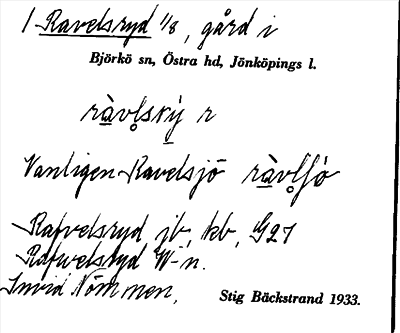 1 Ravelsryd 1/8, gård i
Björkö sn, Östra hd, Jönköpings l.
ràvl̥skỳ̱ r
Vanligen Ravelsjö ràvl̥ʃö
Rafvelsryd jb, kb, G27
Rafwelsryd W-n.
Invid Nömmen.
Stig Bäckstrand 1933.